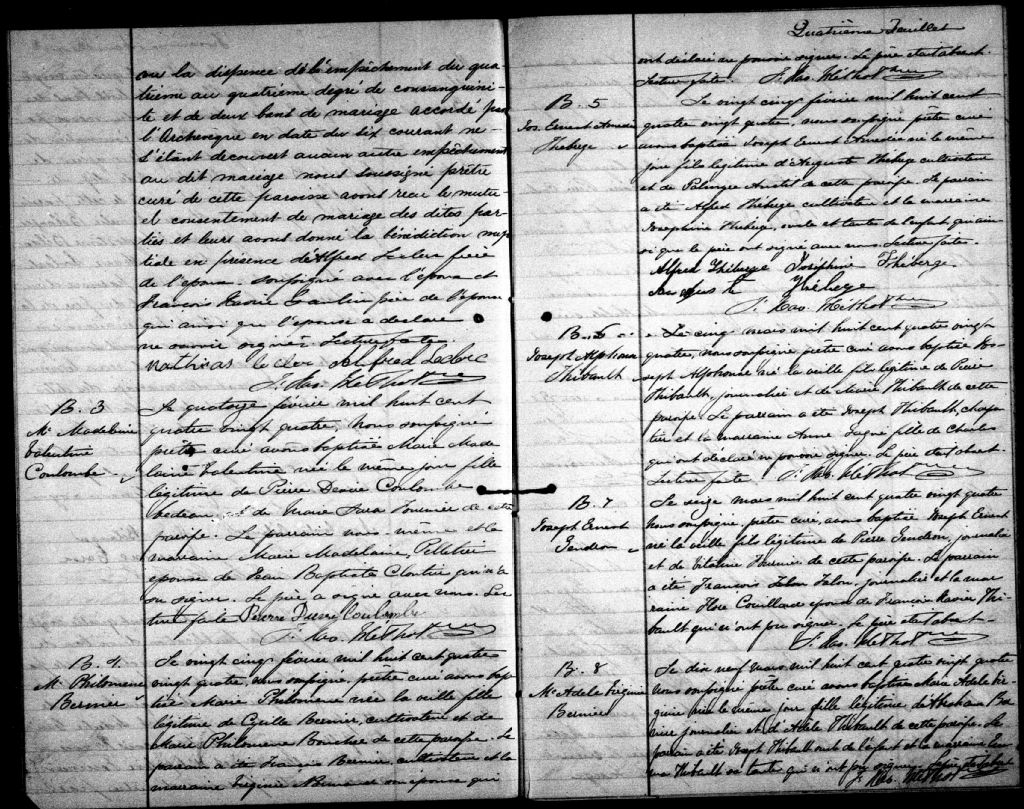 ou la dispense de l'empêchement du qua
trième au quatrième degré de consanguini
té et de deux bans de mariage accordé par
l'Archevêque en date du six courant ne
s'étant découvert aucun autre empêchement
au dit mariage nous soussigné prêtre
curé de cette paroisse avons reçu le mutu-
el consentement de mariage des dites par-
ties et leurs avons donné la bénédiction nup
tiale en présence d'Alfred Leclerc frère
de l'époux soussigné avec l'époux et
François Xavier Gaulin père de l'épouse
qui ainsi que l'épouse a déclaré
ne savoir signer. Lecture faite.
Mathias Leclerc Alfred Leclerc
B. 3
M. Madeleine
Valentine
Coulombe
Le quatorze février mil huit cent
quatre vingt quatre, nous soussigné
prêtre curé avons baptisé Marie Made
laine Valentine née le même jour fille
légitime de Pierre Désiré Coulombe
bedeau et de Marie Bernier de cette
paroisse. Le parrain nous-même et la
marraine Marie Madelaine Pelletier
épouse de Jean Baptiste Cloutier qui n'a
su signer. Le père a signé avec nous. Lec
ture faite Pierre Désiré Coulombe
B. 4
M. Philomène
Bernier
Le vingt cinq février mil huit cent quatre
vingt quatre, nous soussigné, prêtre curé avons bap
tisé Marie Philomène née la veille fille
légitime de Cyrille Bernier, cultivateur et de
Marie Philomène Boucher de cette paroisse. Le
parrain a été François Bernier, cultivateur et la
marraine Virginie son épouse qui
Quatrième Feuillet
ont déclaré ne pouvoir signer. Le père était absent.
Lecture faite.
B. 5
Jos. Ernest Amédé
Théberge
Le vingt cinq février mil huit cent
quatre vingt quatre, nous soussigné prêtre curé
avons baptisé Joseph Ernest Amédé né le même
jour fils légitime d'Auguste Théberge cultivateur
et de de cette paroisse. Le parrain
a été Alfred Théberge cultivateur et la marraine
Joséphine Théberge, oncle et tante de l'enfant qui ain
si que le père ont signé avec nous. Lecture faite.
Alfred Théberge Joséphine Théberge
Auguste Théberge
B. 6
Joseph Alphonse
Thibault
Le cinq mars mil huit cent quatre vingt
quatre, nous soussigné prêtre curé avons baptisé Jos
seph Alphonse né la veille fils légitime de Pierre
Thibault, journalier et de Marie Thibault de cette
paroisse. Le parrain a été Joseph Thibault, charpen
tier et la marraine Anne Gagné fille de Charles
qui ont déclaré ne pouvoir signer. Le père était absent.
Lecture faite
B. 7
Joseph Ernest
Gendron
Le seize mars mil huit cent quatre vingt quatre
nous soussigné, prêtre curé, avons baptisé Joseph Ernest
né la veille fils légitime de Pierre Gendron, journalier
et de Vitaline de cette paroisse. Le parrain
a été François journalier et la mar
raine Flore Couillard épouse de François Xavier Thi
bault qui n'ont pu signer. Le père était absent.
B. 8
M. Adèle Virginie
Bernier
Le dix neuf mars mil huit cent quatre vingt quatre
nous soussigné prêtre curé avons baptisé Marie Adèle Vir
ginie née le même jour fille légitime d'Abraham Ber
nier journalier et d'Adèle Thibault de cette paroisse. Le
parrain a été Joseph Thibault oncle de l'enfant et la marraine
Thibault sa tante qui n'ont pu signer. Le père était absent